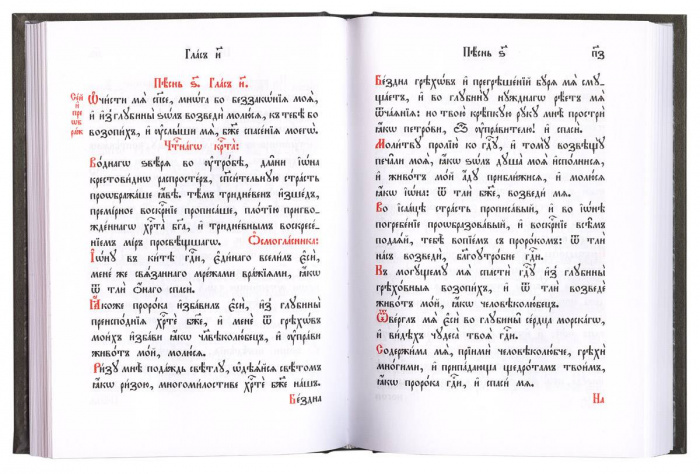 Гла́съ и҃
Пѣ́снь ѕ҃. Гла́съ и҃.
Ѡ҆чи́сти мѧ̀ сп҃се, мнѡ́га бо беззакѡ́нїѧ моѧ̑,
и҆ и҆з̾ глꙋбины̀ ѕѡ́лъ возведѝ молю́сѧ, къ тебѣ́ бо
возопи́хъ, и҆ ᲂу҆слы́ши мѧ̀, бж҃е спасе́нїѧ моегѡ̀.
Чⷭ҇тна́гѡ крⷭ҇та̀:
Во́днагѡ ѕвѣ́рѧ во ᲂу҆тро́бѣ, дла̑ни і҆ѡ́на
крестови́днѡ распросте́ръ, сп҃си́тельнꙋю стра́сть
проѡбража́ше ꙗ҆́вѣ. тѣ́мъ тридне́венъ и҆зше́дъ,
премі́рное воскрⷭ҇нїе прописа́ше, пло́тїю пригво-
жде́ннагѡ хрⷭ҇та̀ бг҃а, и҆ тридне́внымъ воскресе́-
нїемъ мі́ръ просвѣ́щшагѡ. Ѻ҆смогла́сника:
І҆ѡ́нꙋ въ ки́тѣ гдⷭ҇и, є҆ди́наго всели́лъ є҆сѝ,
мене́ же свѧ́заннаго мре́жами вра́жїими, ꙗ҆́кѡ
ѿ тлѝ ѻ҆́наго спасѝ.
Ꙗ҆́коже проро́ка и҆зба́вилъ є҆сѝ, и҆з̾ глꙋбины̀
преиспо́днїѧ хрⷭ҇тѐ бж҃е, и҆ менѐ ѿ грѣхѡ́въ
мои́хъ и҆зба́ви ꙗ҆́кѡ чл҃вѣколю́бецъ, и҆ ᲂу҆пра́ви
живо́тъ мо́й, молю́сѧ.
Ри́зꙋ мнѣ̀ пода́ждь свѣ́тлꙋ, ѡ҆дѣѧ́йсѧ свѣ́томъ
ꙗ҆́кѡ ри́зою, многоми́лостиве хрⷭ҇тѐ бж҃е на́шъ.
Бе́здна
Пѣ́снь ѕ҃
п҃з
Бе́здна грѣхѡ́въ и҆ прегрѣше́нїй бꙋ́рѧ мѧ̀ смꙋ-
ща́етъ, и҆ во глꙋбинꙋ̀ нꙋ́жднагѡ рѣ́етъ мѧ̀
ѿча́ѧнїѧ: но твою̀ крѣ́пкꙋю рꙋ́кꙋ мнѣ̀ прострѝ
ꙗ҆́кѡ петро́ви, ѽ ᲂу҆пра́вителю! и҆ спасѝ.
Моли́твꙋ пролїю̀ ко гдⷭ҇ꙋ, и҆ томꙋ̀ возвѣщꙋ̀
печа̑ли моѧ̑, ꙗ҆́кѡ ѕѡ́лъ дꙋша̀ моѧ̀ и҆спо́лнисѧ,
и҆ живо́тъ мо́й а҆́дꙋ прибли́жисѧ, и҆ молю́сѧ
ꙗ҆́кѡ і҆ѡ́на: ѿ тлѝ бж҃е, возведѝ мѧ̀.
Во і҆саа́цѣ стра́сть прописа́вый, и҆ во і҆ѡ́нѣ
погребе́нїе проѡбразова́вый, и҆ воскрⷭ҇нїе всѣ̑мъ
подаѧ́й, тебѣ̀ вопїе́мъ съ проро́комъ: ѿ тлѝ
на́съ возведѝ, благоꙋтро́бне гдⷭ҇и.
К̾ могꙋ́щемꙋ мѧ̀ спастѝ гдⷭ҇ꙋ и҆з̾ глꙋбины̀
грѣхо́вныѧ возопи́хъ, и҆ ѿ тлѝ возведѐ
живо́тъ мо́й, ꙗ҆́кѡ человѣколю́бецъ.
Ѿве́рглъ мѧ̀ є҆сѝ во глꙋбины̑ се́рдца морска́гѡ,
и҆ ви́дѣхъ чꙋдеса̀ твоѧ̑ гдⷭ҇и.
Содержи́ма мѧ̀, прїимѝ человѣколю́бче, грѣхѝ
мно́гими, и҆ припа́дающа щедро́тамъ твои̑мъ,
ꙗ҆́кѡ проро́ка гдⷭ҇и, и҆ спаси́ мѧ.
На